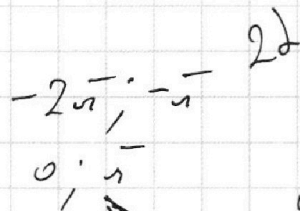 2)
-2π; -π
0; π